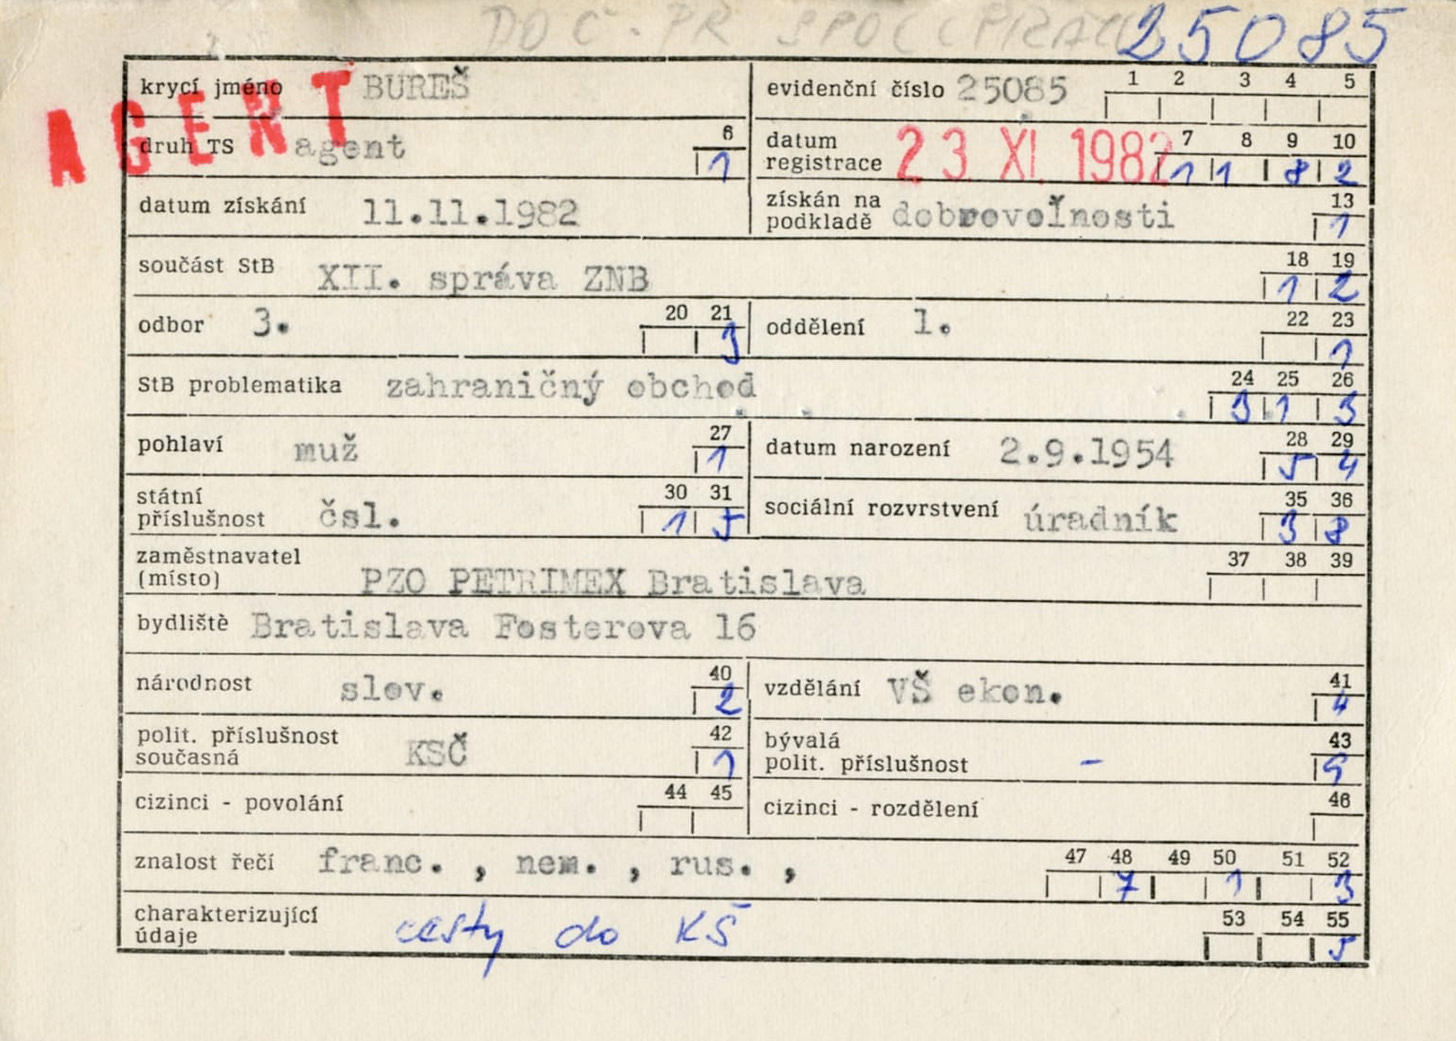 DOČ. PR SPOLUPRÁCU 25085
AGENT
krycí jméno BUREŠ evidenční číslo 25085 1 2 3 4 5
druh TS agent 6 1 datum registrace 23 XI. 1982 7 8 9 10 1 1 8 2
datum získání 11.11.1982 získán na podkladě dobrovoľnosti 13 1
součást StB XII. správa ZNB 18 19 1 2
odbor 3. 20 21 3 oddělení 1. 22 23 1
StB problematika zahraničný obchod 24 25 26 3 1 3
pohlaví muž 27 1 datum narození 2.9.1954 28 29 5 4
státní příslušnost čsl. 30 31 1 5 sociální rozvrstvení úradník 35 36 3 8
zaměstnavatel (místo) PZO PETRIMEX Bratislava 37 38 39
bydliště Bratislava Fosterova 16
národnost slov. 40 2 vzdělání VŠ ekon. 41 4
polit. příslušnost současná KSČ 42 1 bývalá polit. příslušnost - 43 9
cizinci - povolání 44 45 cizinci - rozdělení 46
znalost řečí franc. , nem. , rus. , 47 48 49 50 51 52 7 1 3
charakterizující údaje cesty do KŠ 53 54 55 5